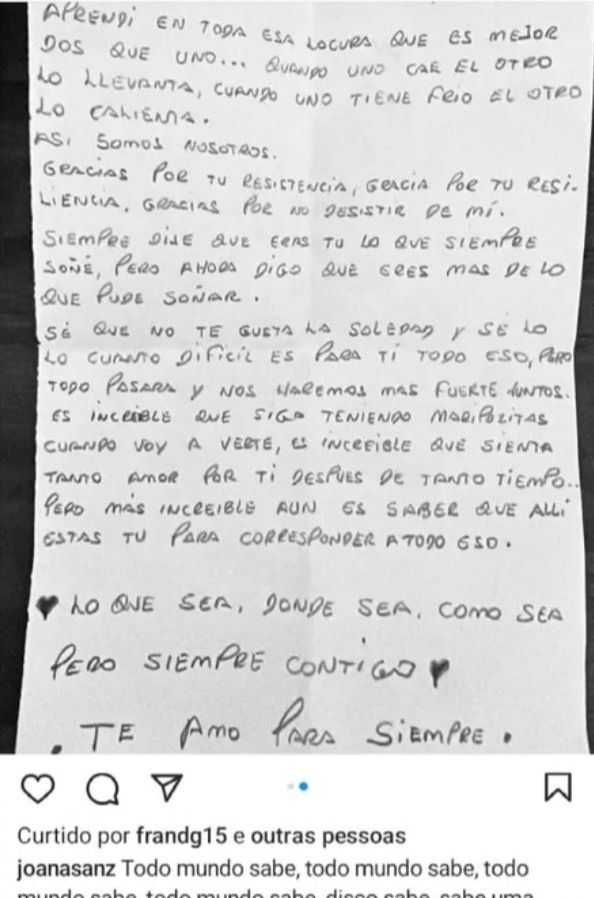 APRENDI EN TODA ESA LOCURA QUE ES MEJOR
DOS QUE UNO... QUANDO UNO CAE EL OTRO
LO LLEVANTA, CUANDO UNO TIENE FRIO EL OTRO
LO CALIENTA.
ASI SOMOS NOSOTROS.
GRACIAS POR TU RESISTENCIA, GRACIA POR TU RESI-
LIENCIA, GRACIAS POR NO DESISTIR DE MÍ.
SIEMPRE DIJE QUE ERAS TU LO QUE SIEMPRE
SOÑÉ, PERO AHORA DIGO QUE ERES MAS DE LO
QUE PUDE SOÑAR.
SÉ QUE NO TE GUSTA LA SOLEDAD Y SÉ LO
LO CUANTO DIFICIL ES PARA TI TODO ESO, PERO
TODO PASARA Y NOS HAREMOS MAS FUERTE JUNTOS.
ES INCREIBLE QUE SIGA TENIENDO MARIPOZITAS
CUANDO VOY A VERTE, ES INCREIBLE QUE SIENTA
TANTO AMOR POR TI DESPUES DE TANTO TIEMPO..
PERO MÁS INCREIBLE AUN ES SABER QUE ALLÍ
ESTAS TU PARA CORRESPONDER A TODO ESO.
♥ LO QUE SEA, DONDE SEA, COMO SEA
PERO SIEMPRE CONTIGO ♥
. TE AMO PARA SIEMPRE.
Curtido por frandg15 e outras pessoas
joanasanz Todo mundo sabe, todo mundo sabe, todo
mundo sabe, todo mundo sabe, disco sabe, sabe uma